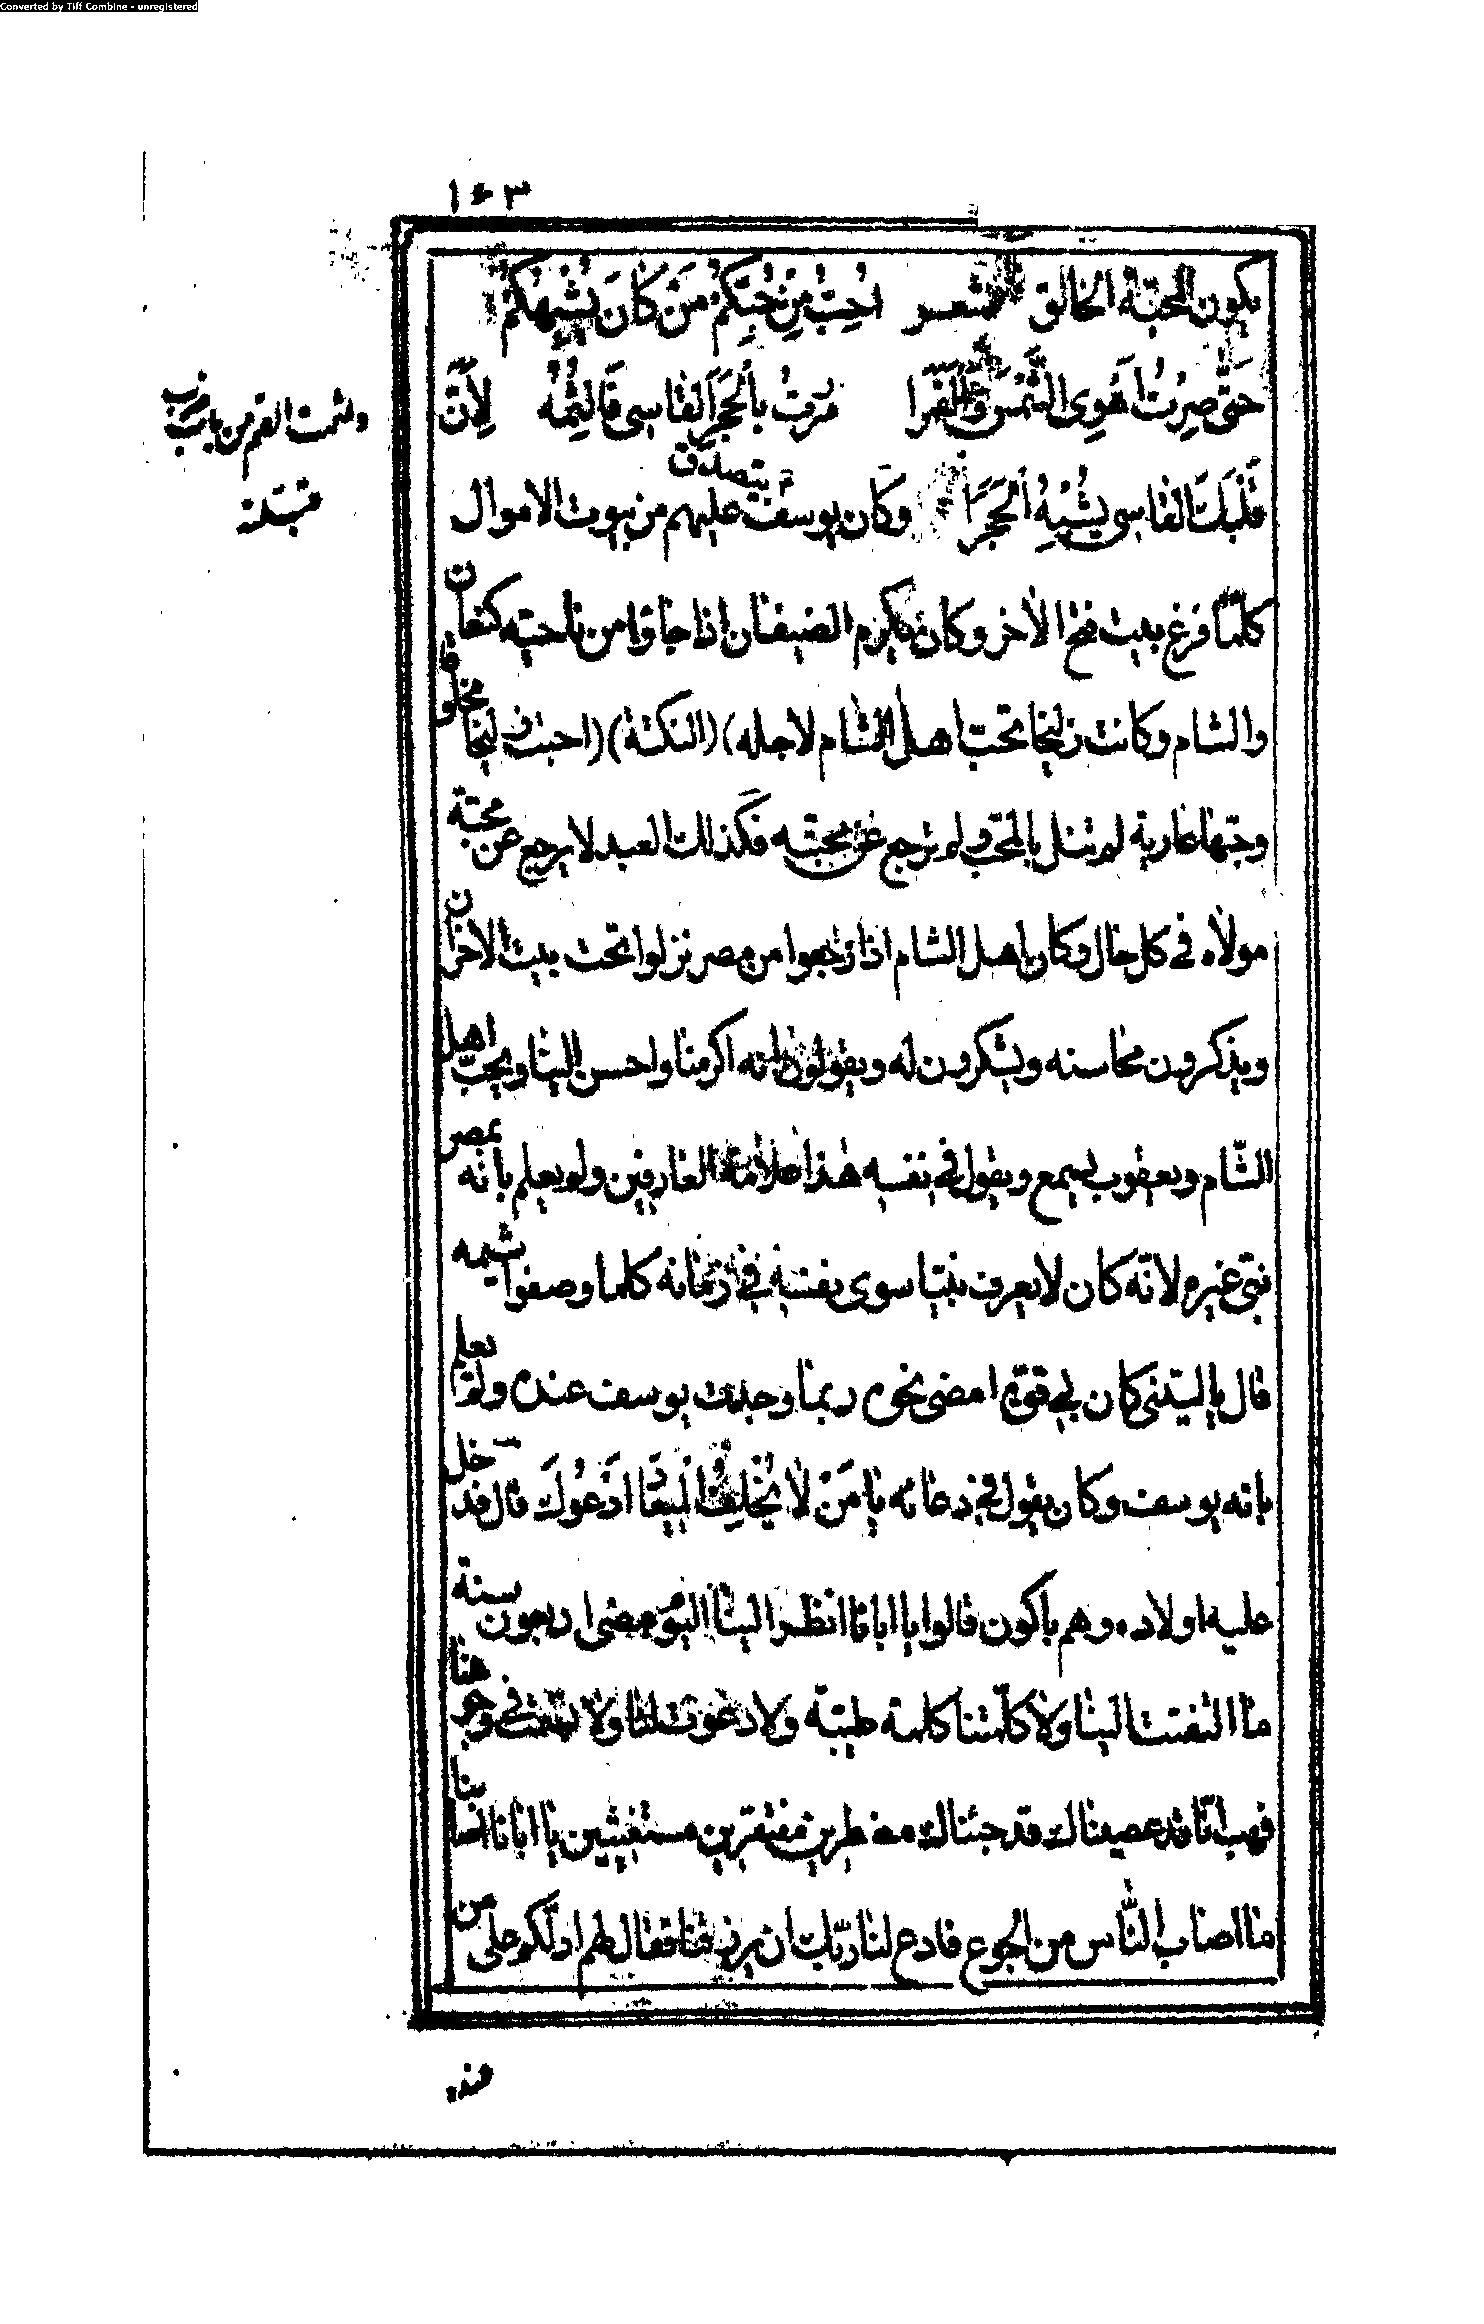 Converted by Tiff Combine - unregistered
١٤٣
يكون المحبة الخالق شعر احب من حبكم من كان يشبهكم
حتى صرت اهوى الشمس والقمرا مررت بالحجر القاسى فالثمه لان
قلبك القاسى يشبه الحجرا وكان يوسف يتصدق عليهم من بيوت الاموال
ولثمت القم من باب
قبلة
كلما فرغ بيت فتح الاخر وكان يكرم الضيفان اذا جاؤا من ناحيته كنعان
والشام وكانت زليخا تحب اهل الشام لاجله) (النكتة) (احبت زليخا مخلوقا
وحبها عارية لم تنل بالمحب ولم ترجع عن محبته فكذلك العبد لا يرجع عن محبة
مولاه في كل حال وكان اهل الشام اذا رجعوا من مصر نزلوا تحت بيت الاحزان
ويذكرون محاسنه ويشكرون له ويقولون انه اكرمنا واحسن الينا ويحب اهل
الشام ويعقوب يسمع ويقول في نفسه هذا علامة العارفين ولم يعلم بانه بمصر
نبى غيره لانه كان لا يعرف نبيا سوى نفسه في زمانه كلما وصفوا شيمه
قال يا ليتنى كان لي قوة امضى نحوه ربما وجدت يوسف عنده ولم يعلم
بانه يوسف وكان يقول في دعائه يا من لا يخلف الميعاد ادعوك قال فدخل
عليه اولاده وهم باكون قالوا يا ابانا انظر الينا اليوم مضى اربعون سنة
ما التفت الينا ولا كلمتنا كلمة طيبة ولا دعوت لنا ولا تبسمت في وجوهنا
فهب انا قد عصيناك قد جئناك مضطرين مفتقرين مستغيثين يا ابانا اصابنا
ما اصاب الناس من الجوع فادع لنا ربك ان يرزقنا فقال لهم ادلكم على من